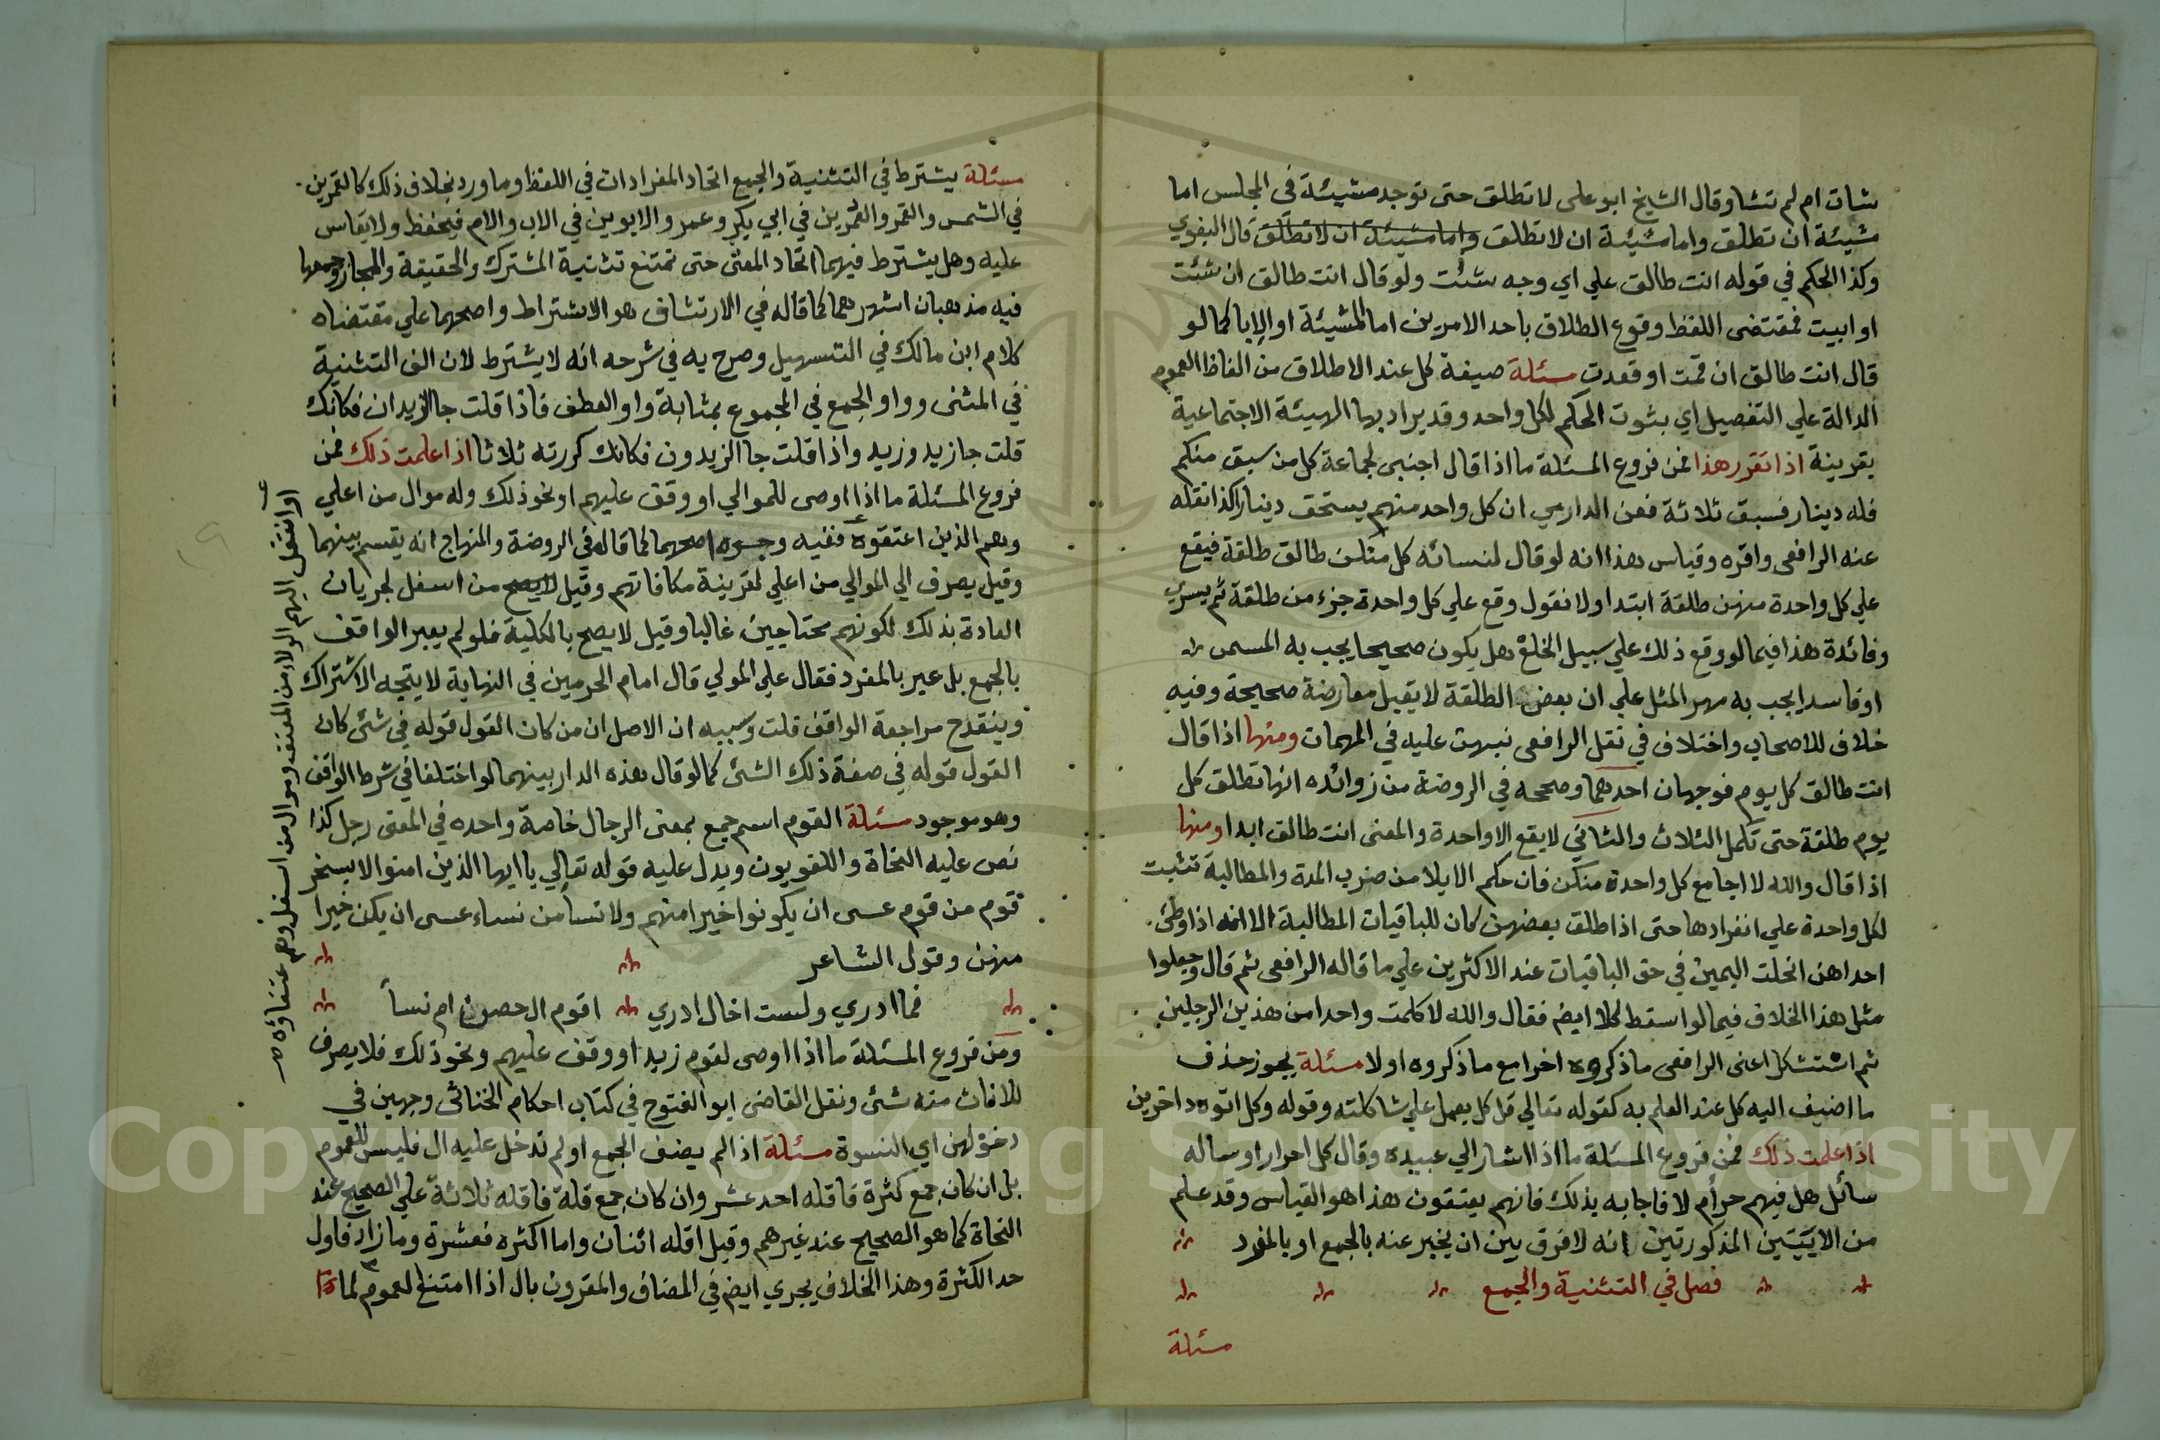 شات ام لم تشا وقال الشيخ ابو على لا تطلق حتى توجد مشيئة فى المجلس اما
مشيئة ان تطلق واما مشيئة ان لا تطلق واما مشيئة ان لا تطلق قال البغوي
وكذا الحكم في قوله انت طالق علي اي وجه شئت ولو قال انت طالق ان شئت
او ابيت فمقتضى اللفظ وقوع الطلاق باحد الامرين اما المشيئة او الابا كما لو
قال انت طالق ان قمت او قعدت مسئلة صيغة كل عند الاطلاق من الفاظ العموم
الدالة علي التفصيل اي بثوت الحكم لكل واحد وقد يراد بها الهيئة الاجتماعية
بقرينة اذا تقرر هذا فمن فروع المسئلة ما اذا قال اجنبى لجماعة كل من سبق منكم
فله دينار فسبق ثلاثة فعن الدارمي ان كل واحد منهم يستحق دينارا كذا نقله
عنه الرافعى واقره وقياس هذا انه لو قال لنسائه كل منكن طالق طلقة فيقع
علي كل واحدة منهن طلقة ابتدا ولا نقول وقع علي كل واحدة جزء من طلقة ثم يسرى
وفائدة هذا فيما لو وقع ذلك علي سبيل الخلع هل يكون صحيحا يجب به المسمى
او فاسدا يجب به مهر المثل علي ان بعض الطلقة لا يقبل معارضة صحيحة وفيه
خلاف للاصحاب واختلاف في نقل الرافعى نبهت عليه في المهمات ومنها اذا قال
انت طالق كل يوم فوجهان احدهما وصححه في الروضة من زوائده انها تطلق كل
يوم طلقة حتى تكمل الثلاث والثاني لا يقع الا واحدة والمعنى انت طالق ابدا ومنها
اذا قال والله لا اجامع كل واحدة منكن فان حكم الايلا من ضرب المدة والمطالبة تثبت
لكل واحدة علي انفرادها حتى اذا طلق بعضهن كان للباقيات المطالبة الا انه اذا وطئ
احداهن انحلت اليمين في حق الباقيات عند الاكثرين علي ما قاله الرافعى ثم قال وجعلوا
مثل هذا الخلاف فيما لو اسقط كلا ايض فقال والله لا كلمت واحدا من هذين الرجلين
ثم استشكل اعنى الرافعى ما ذكروه اخرا مع ما ذكروه اولا مسئلة يجوز حذف
ما اضيف اليه كل عند العلم به كقوله تعالي قل كل يعمل علي شاكلته وقوله وكل اتوه داخرين
اذا علمت ذلك فمن فروع المسئلة ما اذا اشار الي عبيده وقال كل احرار او ساله
سائل هل فيهم حرام لا فاجابه بذلك فانهم يعتقون هذا هو القياس وقد علم
من الايتين المذكورتين انه لا فرق بين ان يخبر عنه بالجمع او بالمفرد
فصل في التثنية والجمع
مسئلة
مسئلة يشترط في التثنية والجمع اتحاد المفرادات في اللفظ وما ورد بخلاف ذلك كالقمرين
في الشمس والقمر والعمرين في ابي بكر وعمر والابوين في الاب والام فيحفظ ولا يقاس
عليه وهل يشترط فيهما اتحاد المعنى حتى تمتنع تثنية المشترك والحقيقة والمجاز وجمعها
فيه مذهبان اشهرهما كما قاله في الارتشاف هو الاشتراط واصحهما علي مقتضاه
كلام ابن مالك في التسهيل وصرح به في شرحه انه لا يشترط لان الف التثنية
في المثنى وواو الجمع في المجموع بمثابة واو العطف فاذا قلت جا الزيدان فكانك
قلت جا زيد وزيد واذا قلت جا الزيدون فكانك كررته ثلاثا اذا علمت ذلك فمن
فروع المسئلة ما اذا اوصى للموالي او وقف عليهم او نحو ذلك وله موال من اعلي
وهم الذين اعتقوه ففيه وجوه اصحهما كما قاله في الروضة والمنهاج انه يقسم بينهما
وقيل يصرف الي الموالي من اعلي لقرينة مكافاتهم وقيل لا يصح من اسفل لجريان
العادة بذلك لكونهم محتاجين غالبا وقيل لا يصح بالكلية فلو لم يعبر الواقف
بالجمع بل عبر بالمفرد فقال علي المولي قال امام الحرمين في النهاية لا يتجه الاشتراك
وينقدح مراجعة الواقف قلت وسببه ان الاصل ان من كان القول قوله في شئ كان
القول قوله في صفة ذلك الشئ كما لو قال هذه الدار بينهما لو اختلفا في شرط الواقف
وهو موجود مسئلة القوم اسم جمع بمعنى الرجال خاصة واحده في المعنى رجل كذا
نص عليه النحاة واللغويون ويدل عليه قوله تعالي يا ايها الذين امنوا لا يسخر
قوم من قوم عسى ان يكونوا خيرا منهم ولا نسا من نساء عسى ان يكن خيرا
منهن وقول الشاعر
فما ادري ولست اخال ادري اقوم ال حصن ام نسأ
ومن فروع المسئلة ما اذا اوصى لقوم زيد او وقف عليهم ونحو ذلك فلا يصرف
للاناث منه شئ ونقل القاضى ابو الفتوح في كتاب احكام الخناثى وجهين في
دخولهن اي النسوة مسئلة اذا لم يضف الجمع او لم تدخل عليه ال فليس للعموم
بل ان كان جمع كثرة فاقله احد عشر وان كان جمع قلة فاقله ثلاثة علي الصحيح عند
النحاة كما هو الصحيح عند غيرهم وقيل اقله اثنان واما اكثره فعشرة وما زاد فاول
حد الكثرة وهذا الخلاف يجري ايض في المضاف والمقرون بال اذا امتنع العموم لما
او انتقل اليهم الولاء من المعتق وموال من اسفل وهم عتقاؤه
Copyright © King Saud University